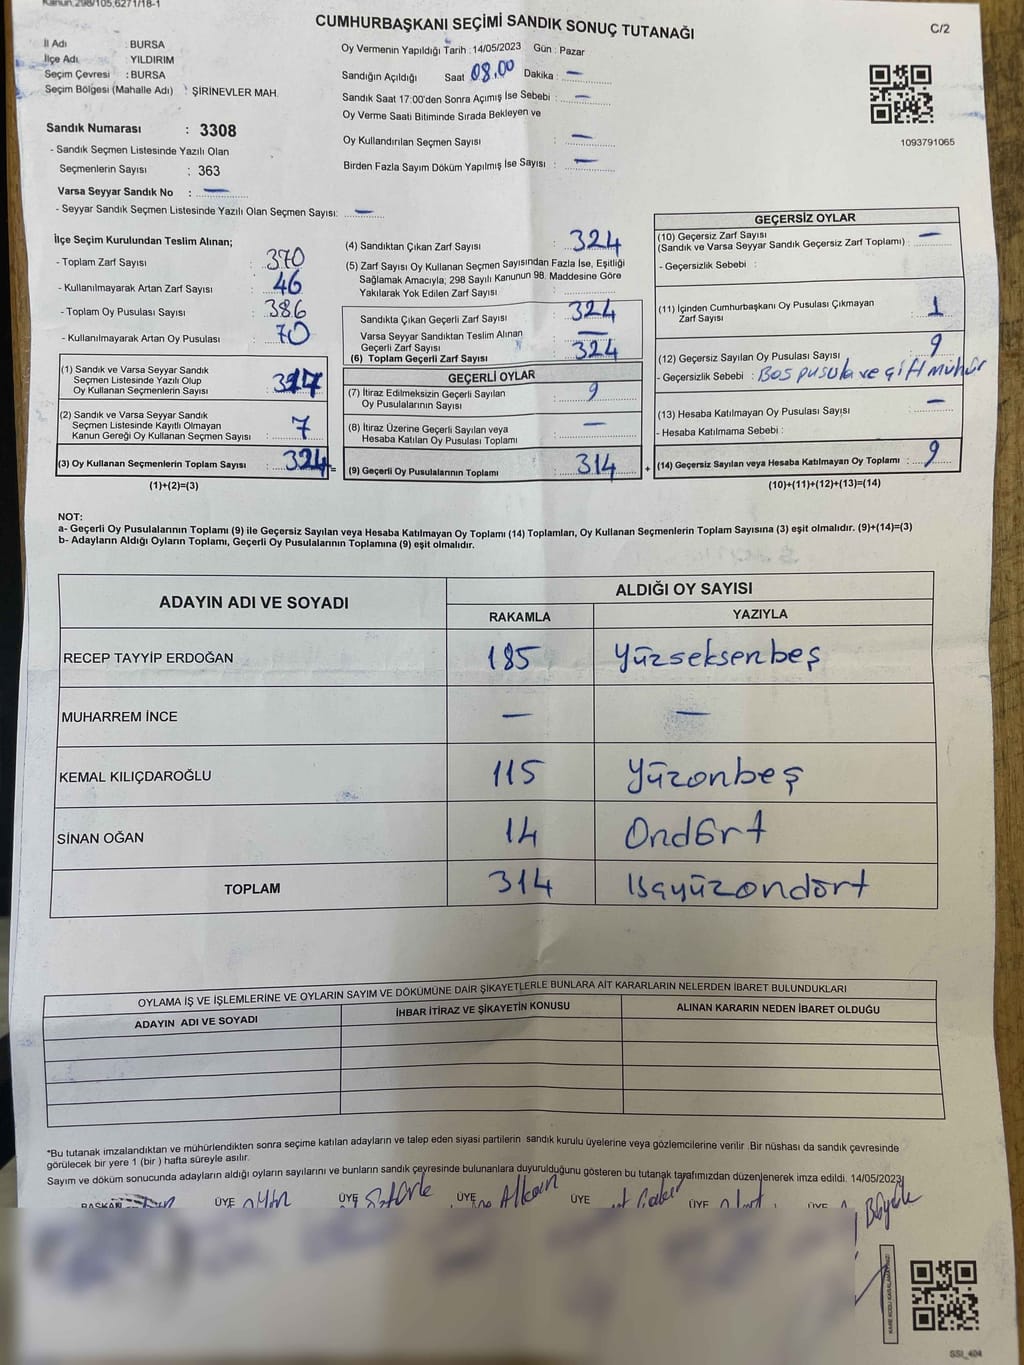 Kanun,298/105,6271/18-1
CUMHURBAŞKANI SEÇİMİ SANDIK SONUÇ TUTANAĞI
C/2
İl Adı : BURSA
İlçe Adı : YILDIRIM
Seçim Çevresi : BURSA
Seçim Bölgesi (Mahalle Adı) : ŞİRİNEVLER MAH.
Oy Vermenin Yapıldığı Tarih : 14/05/2023 Gün : Pazar
Sandığın Açıldığı Saat 08.00 Dakika : —
Sandık Saat 17:00'den Sonra Açımış İse Sebebi : —
Oy Verme Saati Bitiminde Sırada Bekleyen ve
Oy Kullandırılan Seçmen Sayısı : —
Birden Fazla Sayım Döküm Yapılmış İse Sayısı : —
1093791065
Sandık Numarası : 3308
- Sandık Seçmen Listesinde Yazılı Olan
Seçmenlerin Sayısı : 363
Varsa Seyyar Sandık No : —
- Seyyar Sandık Seçmen Listesinde Yazılı Olan Seçmen Sayısı: —
İlçe Seçim Kurulundan Teslim Alınan;
- Toplam Zarf Sayısı : 370
- Kullanılmayarak Artan Zarf Sayısı : 46
- Toplam Oy Pusulası Sayısı : 386
- Kullanılmayarak Artan Oy Pusulası : 70
(1) Sandık ve Varsa Seyyar Sandık
Seçmen Listesinde Yazılı Olup
Oy Kullanan Seçmenlerin Sayısı : 317
(2) Sandık ve Varsa Seyyar Sandık
Seçmen Listesinde Kayıtlı Olmayan
Kanun Gereği Oy Kullanan Seçmen Sayısı : 7
(3) Oy Kullanan Seçmenlerin Toplam Sayısı : 324 =
(1)+(2)=(3)
(4) Sandıktan Çıkan Zarf Sayısı : 324
(5) Zarf Sayısı Oy Kullanan Seçmen Sayısından Fazla İse, Eşitliği
Sağlamak Amacıyla; 298 Sayılı Kanunun 98. Maddesine Göre
Yakılarak Yok Edilen Zarf Sayısı :
Sandıkta Çıkan Geçerli Zarf Sayısı : 324
Varsa Seyyar Sandıktan Teslim Alınan
Geçerli Zarf Sayısı : —
(6) Toplam Geçerli Zarf Sayısı : 324
GEÇERLİ OYLAR
(7) İtiraz Edilmeksizin Geçerli Sayılan
Oy Pusulalarının Sayısı : 9
(8) İtiraz Üzerine Geçerli Sayılan veya
Hesaba Katılan Oy Pusulası Toplamı : —
(9) Geçerli Oy Pusulalarının Toplamı : 314 +
GEÇERSİZ OYLAR
(10) Geçersiz Zarf Sayısı
(Sandık ve Varsa Seyyar Sandık Geçersiz Zarf Toplamı) : —
- Geçersizlik Sebebi :
(11) İçinden Cumhurbaşkanı Oy Pusulası Çıkmayan
Zarf Sayısı : 1
(12) Geçersiz Sayılan Oy Pusulası Sayısı : 9
- Geçersizlik Sebebi : Bos pusula ve çift mühür
(13) Hesaba Katılmayan Oy Pusulası Sayısı : —
- Hesaba Katılmama Sebebi :
(14) Geçersiz Sayılan veya Hesaba Katılmayan Oy Toplamı : 9
(10)+(11)+(12)+(13)=(14)
NOT:
a- Geçerli Oy Pusulalarının Toplamı (9) ile Geçersiz Sayılan veya Hesaba Katılmayan Oy Toplamı (14) Toplamları, Oy Kullanan Seçmenlerin Toplam Sayısına (3) eşit olmalıdır. (9)+(14)=(3)
b- Adayların Aldığı Oyların Toplamı, Geçerli Oy Pusulalarının Toplamına (9) eşit olmalıdır.
ADAYIN ADI VE SOYADI
ALDIĞI OY SAYISI
RAKAMLA YAZIYLA
RECEP TAYYİP ERDOĞAN 185 Yüzseksenbeş
MUHARREM İNCE — —
KEMAL KILIÇDAROĞLU 115 Yüzonbeş
SİNAN OĞAN 14 Ondört
TOPLAM 314 üçyüzondört
OYLAMA İŞ VE İŞLEMLERİNE VE OYLARIN SAYIM VE DÖKÜMÜNE DAİR ŞİKAYETLERLE BUNLARA AİT KARARLARIN NELERDEN İBARET BULUNDUKLARI
ADAYIN ADI VE SOYADI İHBAR İTİRAZ VE ŞİKAYETİN KONUSU ALINAN KARARIN NEDEN İBARET OLDUĞU
*Bu tutanak imzalandıktan ve mühürlendikten sonra seçime katılan adayların ve talep eden siyasi partilerin sandık kurulu üyelerine veya gözlemcilerine verilir. Bir nüshası da sandık çevresinde
görülecek bir yere 1 (bir) hafta süreyle asılır.
Sayım ve döküm sonucunda adayların aldığı oyların sayılarını ve bunların sandık çevresinde bulunanlara duyurulduğunu gösteren bu tutanak tarafımızdan düzenlenerek imza edildi. 14/05/2023
BAŞKAN ÜYE ÜYE ÜYE ÜYE ÜYE ÜYE
SSI_404